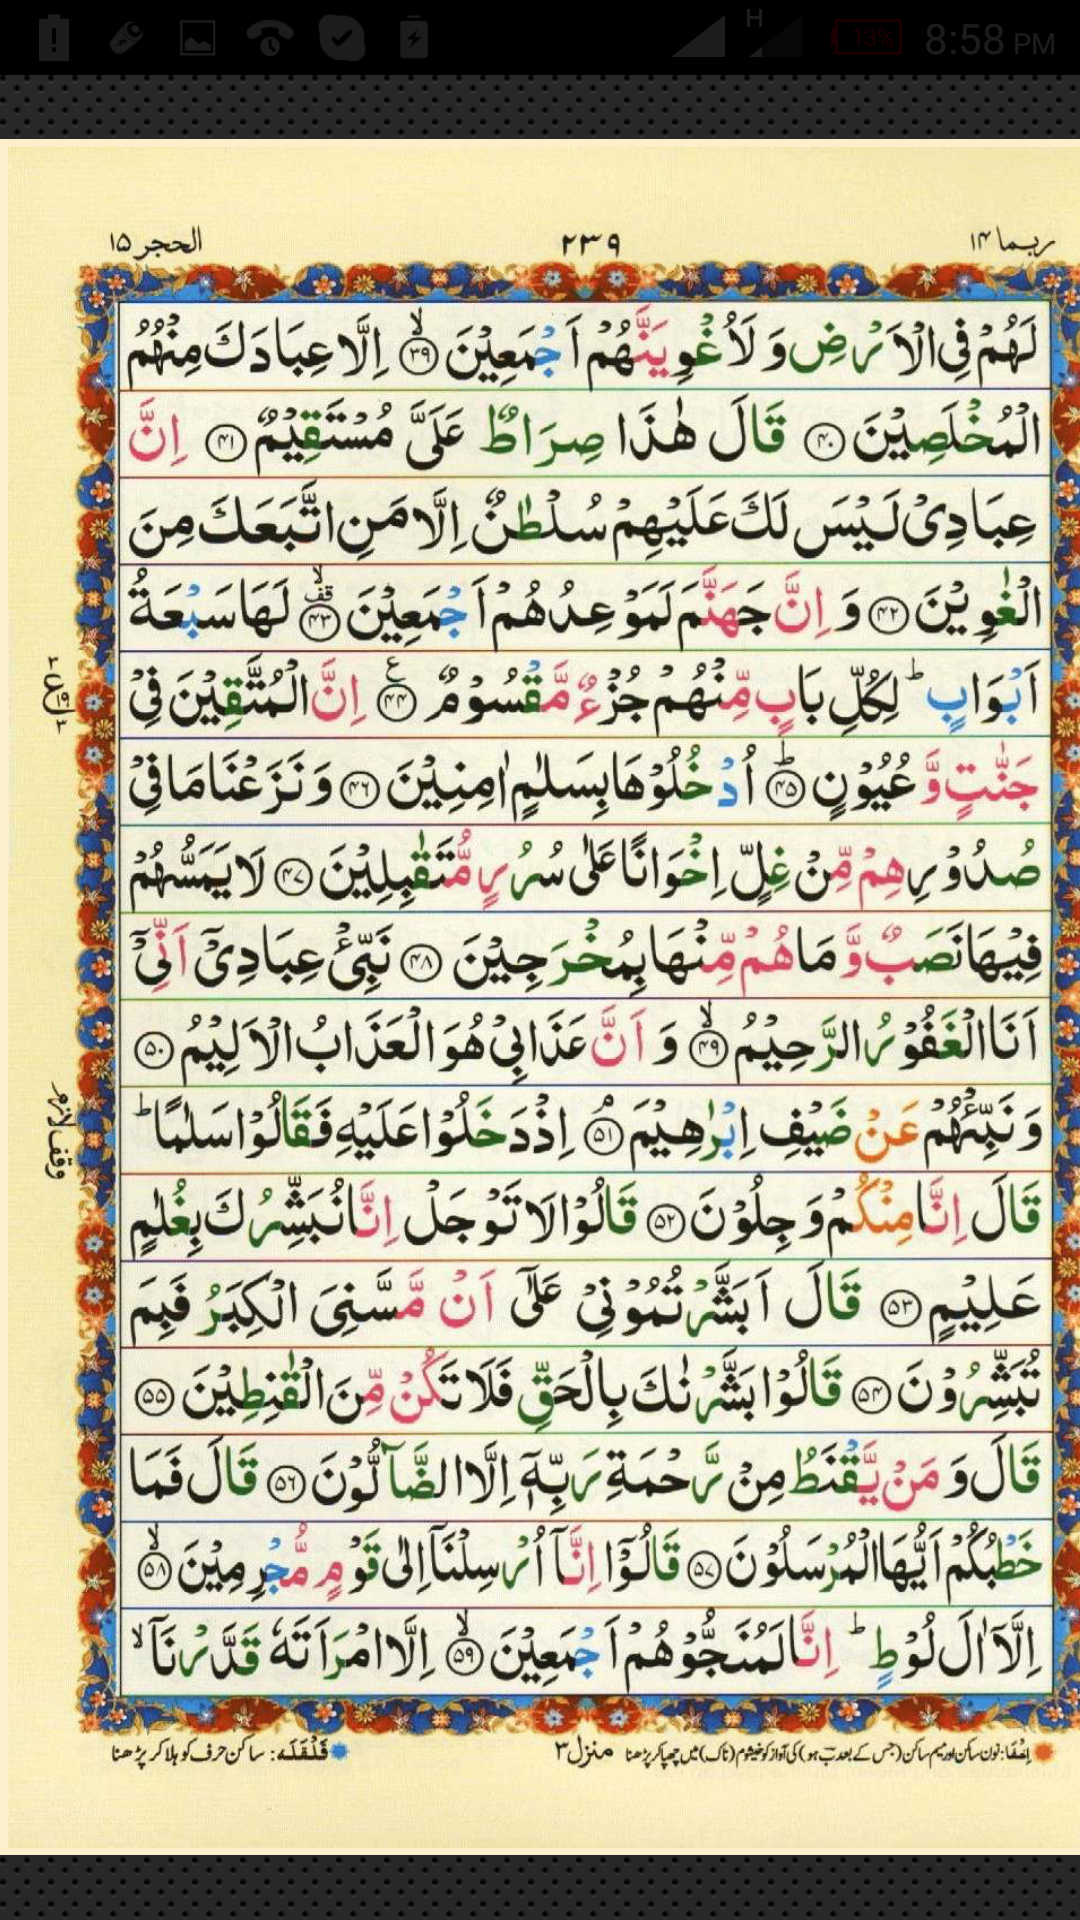 H 13% 8:58 PM
ربما ۱۴ ۲۳۹ الحجر ۱۵
لَهُمْ فِى الْاَرْضِ وَ لَاُغْوِيَنَّهُمْ اَجْمَعِيْنَ ﴿۳۹﴾ اِلَّا عِبَادَكَ مِنْهُمُ
الْمُخْلَصِيْنَ ﴿۴۰﴾ قَالَ هٰذَا صِرَاطٌ عَلَىَّ مُسْتَقِيْمٌ ﴿۴۱﴾ اِنَّ
عِبَادِىْ لَيْسَ لَكَ عَلَيْهِمْ سُلْطٰنٌ اِلَّا مَنِ اتَّبَعَكَ مِنَ
الْغٰوِيْنَ ﴿۴۲﴾ وَ اِنَّ جَهَنَّمَ لَمَوْعِدُهُمْ اَجْمَعِيْنَ ﴿۴۳﴾ۙ قف لَهَا سَبْعَةُ
اَبْوَابٍ ؕ لِكُلِّ بَابٍ مِّنْهُمْ جُزْءٌ مَّقْسُوْمٌ ﴿۴۴﴾ ع اِنَّ الْمُتَّقِيْنَ فِىْ
جَنّٰتٍ وَّ عُيُوْنٍ ﴿۴۵﴾ؕ اُدْخُلُوْهَا بِسَلٰمٍ اٰمِنِيْنَ ﴿۴۶﴾ وَ نَزَعْنَا مَا فِىْ
صُدُوْرِهِمْ مِّنْ غِلٍّ اِخْوَانًا عَلٰى سُرُرٍ مُّتَقٰبِلِيْنَ ﴿۴۷﴾ لَا يَمَسُّهُمْ
فِيْهَا نَصَبٌ وَّ مَا هُمْ مِّنْهَا بِمُخْرَجِيْنَ ﴿۴۸﴾ نَبِّئْ عِبَادِىْۤ اَنِّىْۤ
اَنَا الْغَفُوْرُ الرَّحِيْمُ ﴿۴۹﴾ۙ وَ اَنَّ عَذَابِىْ هُوَ الْعَذَابُ الْاَلِيْمُ ﴿۵۰﴾
وَ نَبِّئْهُمْ عَنْ ضَيْفِ اِبْرٰهِيْمَ ﴿۵۱﴾ۘ اِذْ دَخَلُوْا عَلَيْهِ فَقَالُوْا سَلٰمًا ؕ
وقف لازم
قَالَ اِنَّا مِنْكُمْ وَجِلُوْنَ ﴿۵۲﴾ قَالُوْا لَا تَوْجَلْ اِنَّا نُبَشِّرُكَ بِغُلٰمٍ
عَلِيْمٍ ﴿۵۳﴾ قَالَ اَبَشَّرْتُمُوْنِىْ عَلٰۤى اَنْ مَّسَّنِىَ الْكِبَرُ فَبِمَ
تُبَشِّرُوْنَ ﴿۵۴﴾ قَالُوْا بَشَّرْنٰكَ بِالْحَقِّ فَلَا تَكُنْ مِّنَ الْقٰنِطِيْنَ ﴿۵۵﴾
قَالَ وَ مَنْ يَّقْنَطُ مِنْ رَّحْمَةِ رَبِّهٖۤ اِلَّا الضَّآلُّوْنَ ﴿۵۶﴾ قَالَ فَمَا
خَطْبُكُمْ اَيُّهَا الْمُرْسَلُوْنَ ﴿۵۷﴾ قَالُوْۤا اِنَّاۤ اُرْسِلْنَاۤ اِلٰى قَوْمٍ مُّجْرِمِيْنَ ﴿۵۸﴾ۙ
اِلَّاۤ اٰلَ لُوْطٍ ؕ اِنَّا لَمُنَجُّوْهُمْ اَجْمَعِيْنَ ﴿۵۹﴾ۙ اِلَّا امْرَاَتَهٗ قَدَّرْنَاۤ ۙ
اِخفَا: نون ساکن اور میم ساکن (جس کے بعد ب ہو) کی آواز کو خیشوم (ناک) میں چھپا کر پڑھنا منزل ۳ قَلْقَلَہ: ساکن حرف کو ہلا کر پڑھنا